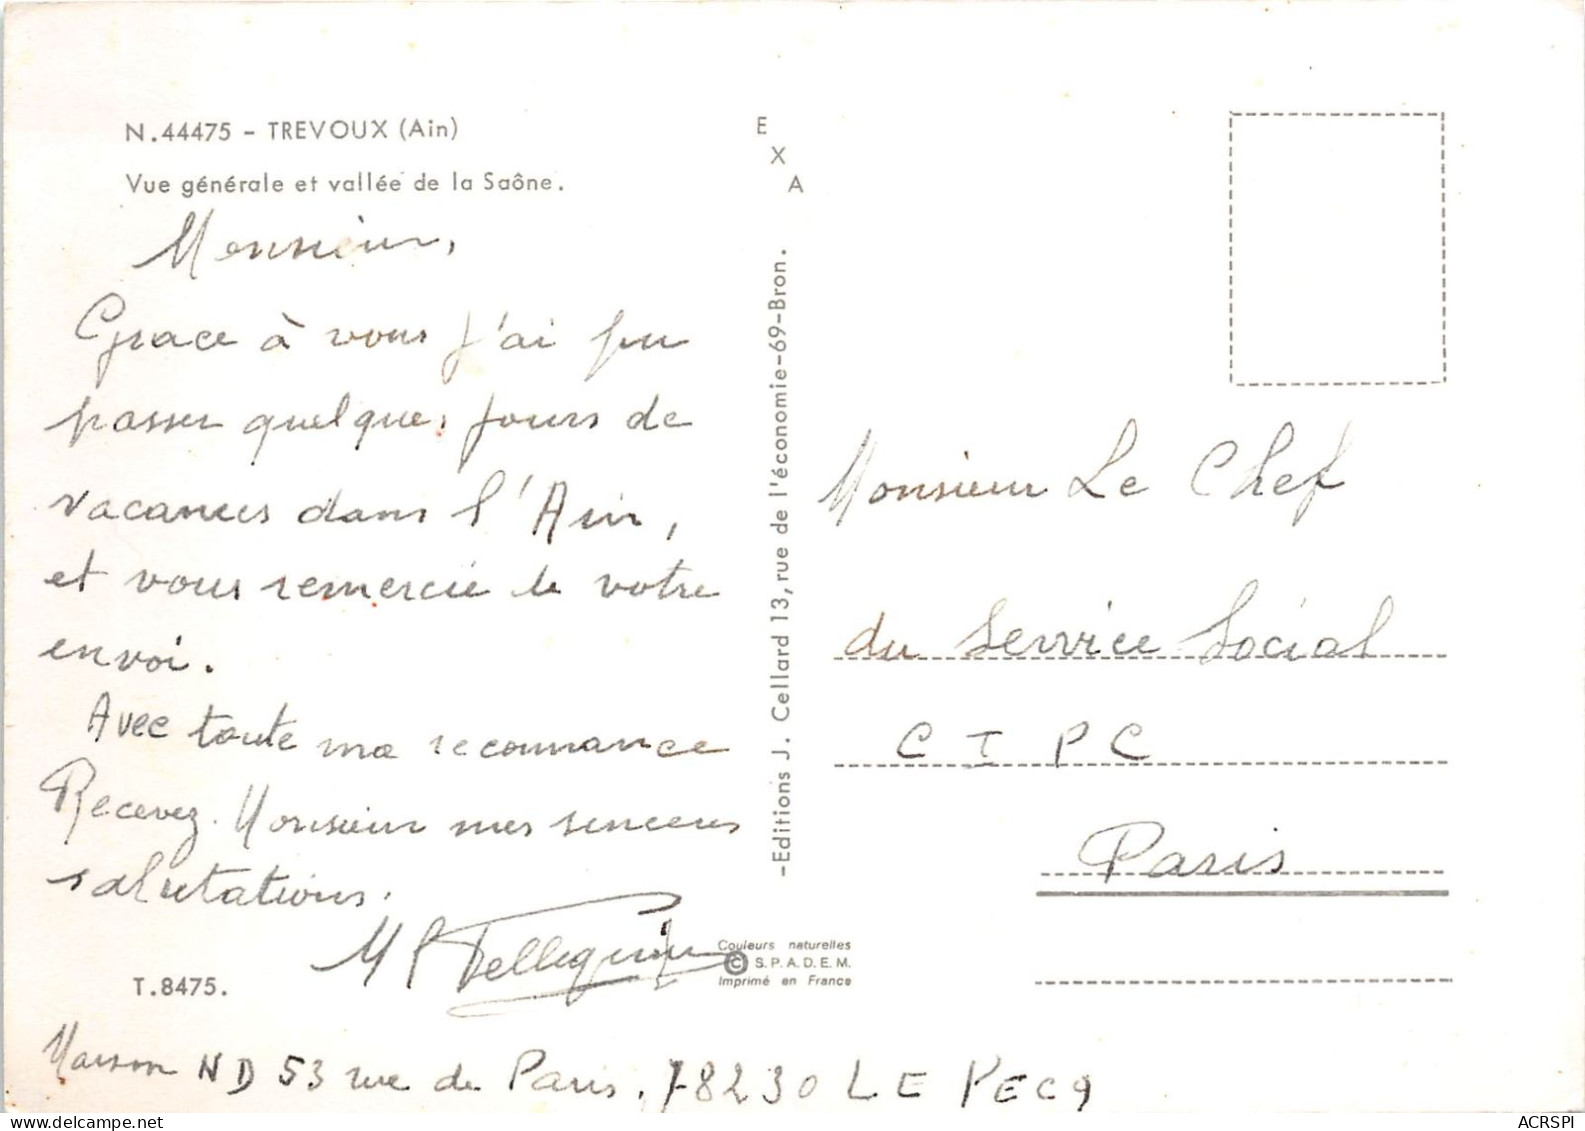 N.44475 – TREVOUX (Ain)
Vue générale et vallée de la Saône.
Monsieur,
Grace à vous j'ai pu
passer quelques jours de
vacances dans l'Ain,
et vous remercie de votre
envoi.
Avec toute ma reconnance
Recevez Monsieur mes sinceres
salutations.
T.8475.
Maison ND 53 rue de Paris. 78230 LE PECQ
E
X
A
–Editions J. Cellard 13, rue de l'économie–69–Bron.
Couleurs naturelles
© S.P.A.D.E.M.
Imprimé en France
Monsieur Le Chef
du Service Social
C I P C
Paris
ACRSPI